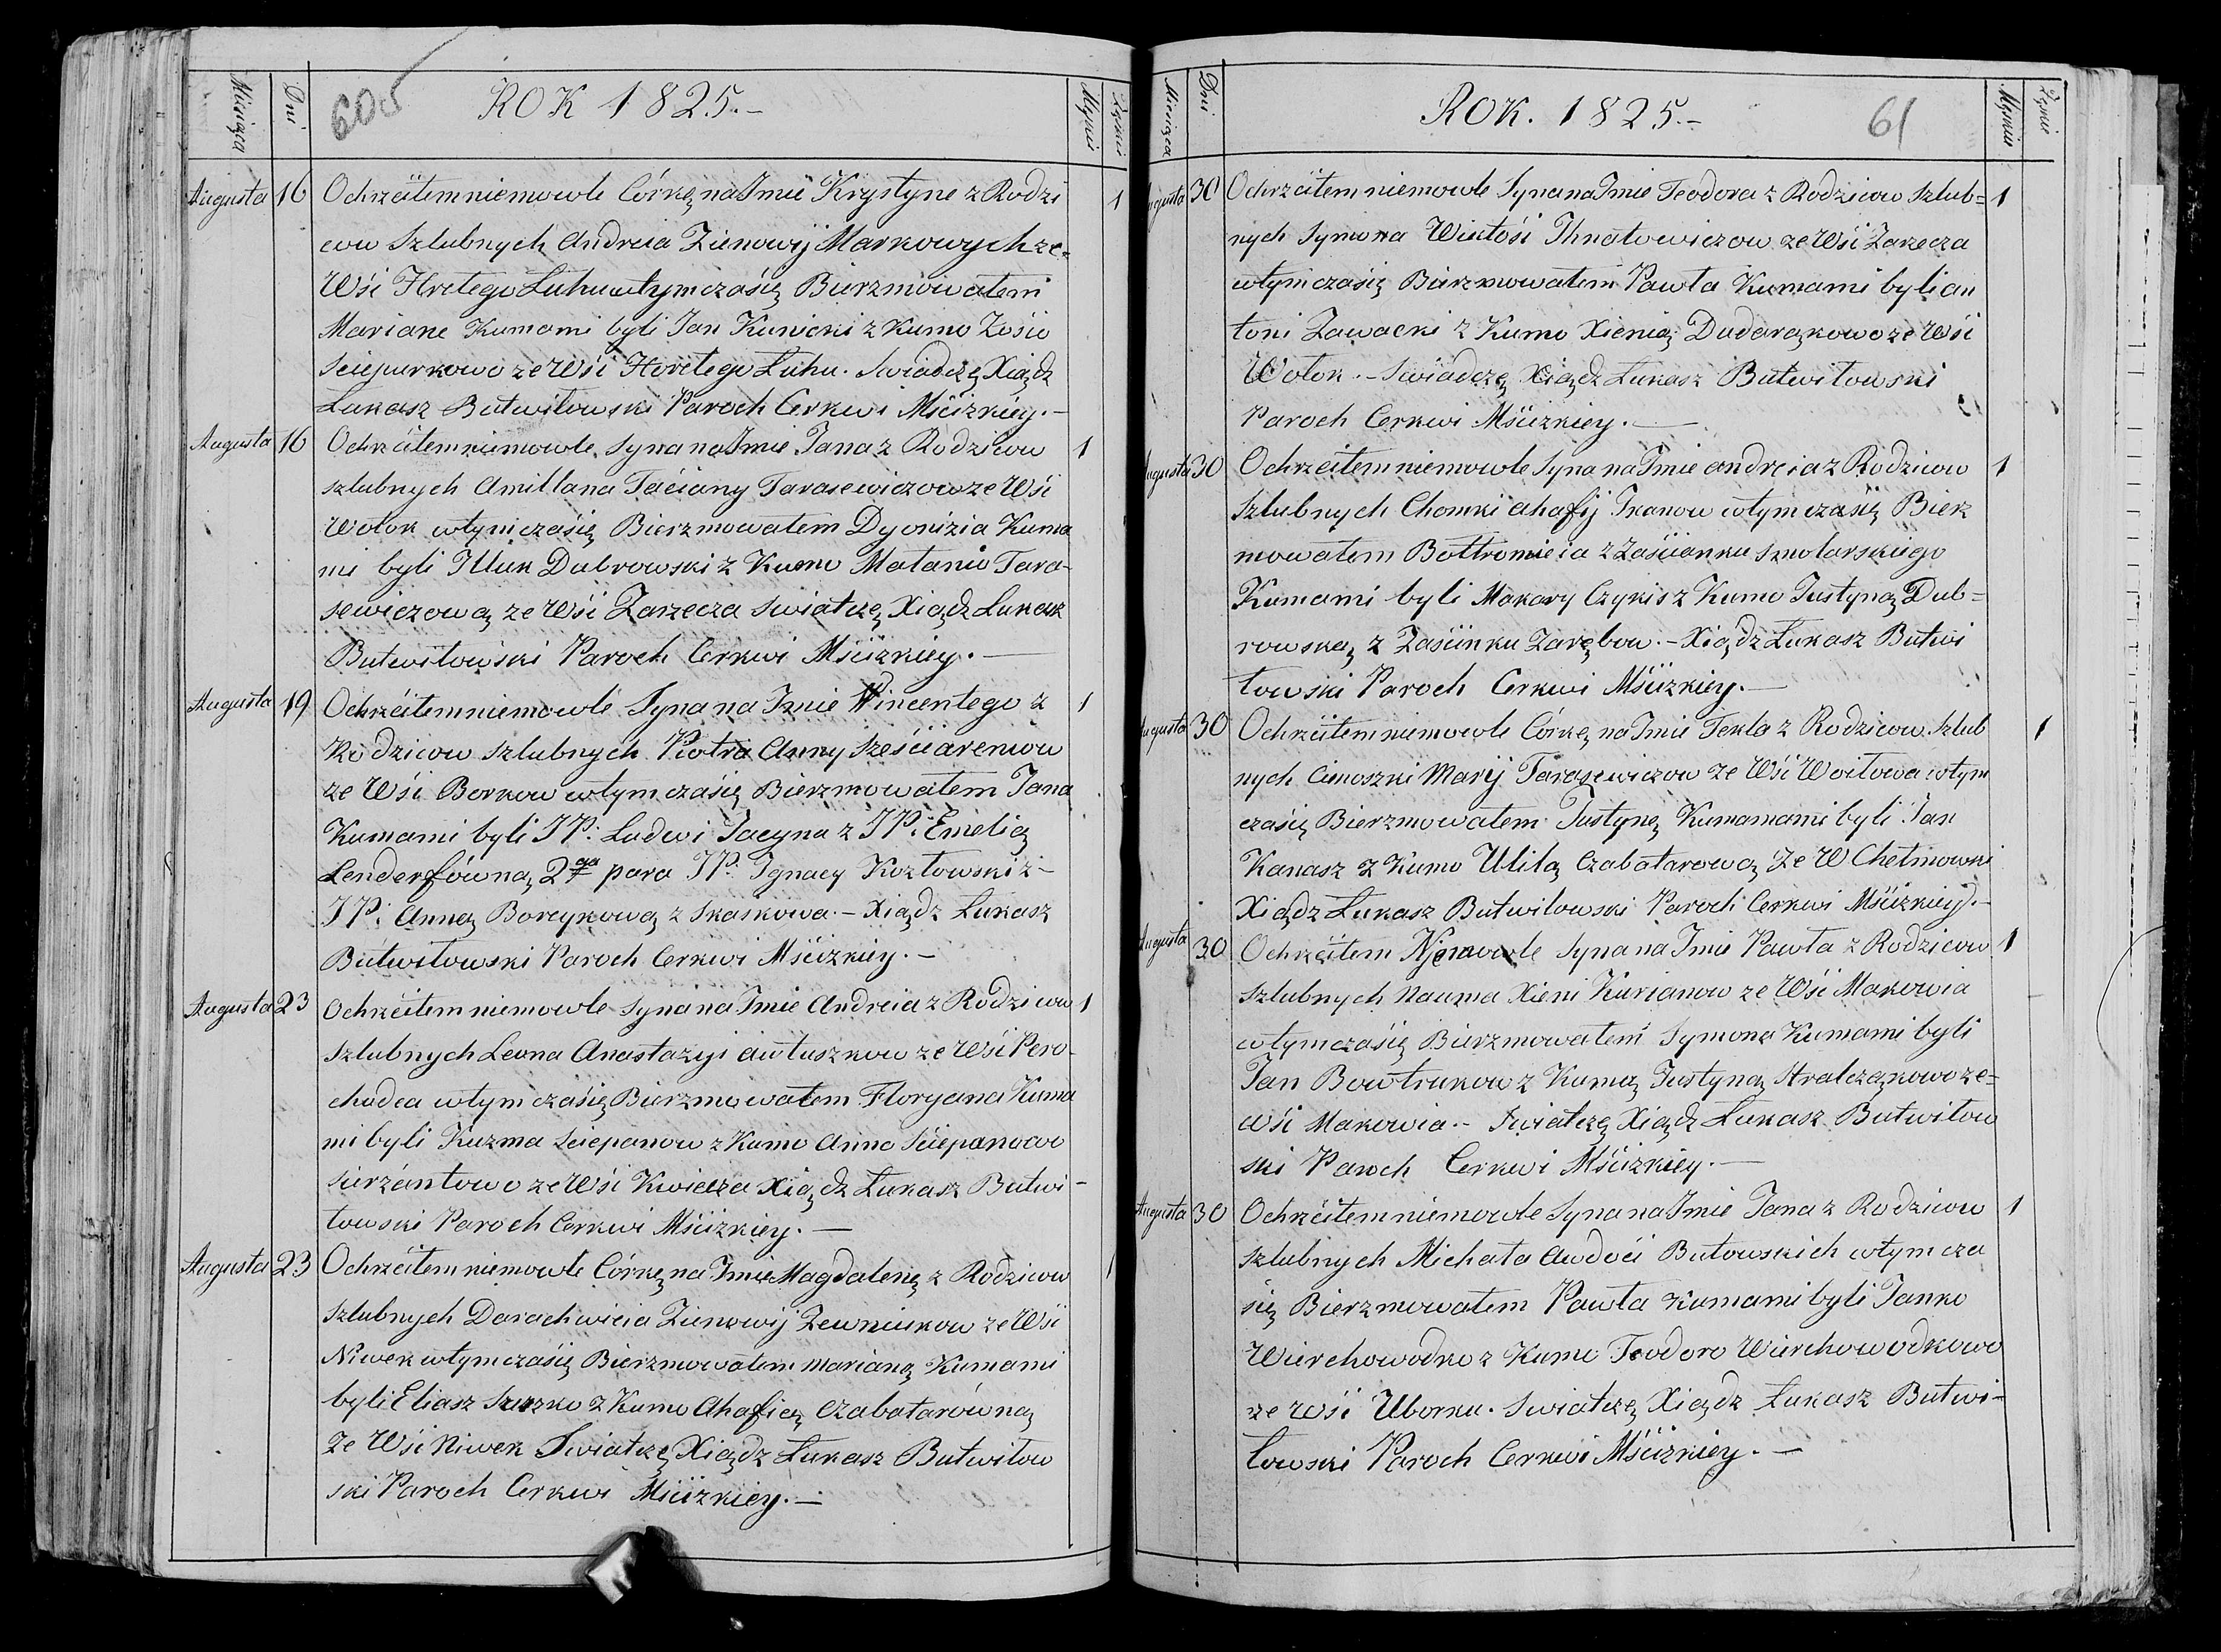 Miesiąca Dni 60об ROK 1825.- Męskie Żeńskie
Augusta 16 Ochrzcitem niemowle Córkę na Imie Krystyne z Rodzi 1
cow Szlubnych Andreia Zienowij Markowych ze-
Wsi Hretego Luhu wtym czásię Bierzmowatem
Mariane Kumami byli Jan Kunicki z Kumo Zośio
Sciepurkowo ze Wśi Horetego Luhu. Swiadczę Xiądz
Łukasz Butwiłowski Paroch Cerkwi Mścizkiey.-
Augusta 16 Ochrzcitem niemowle Syna na Imie Jana z Rodzicow 1
szlubnych Amillana Taćiany Tarasewiczow ze Wśi
Wołok wtym czásię Bierzmowatem Dyonizia Kuma
mi byli Illuk Dubrowski z Kumo Matanio Tara-
sewiczową ze Wśi Zarzecza Swiatczę Xiądz Łukasz
Butwiłowski Paroch Cerkwi Mścizkiey.-
Augusta 19 Ochrzcitem niemowle Syna na Imie Wincentego z 1
Rodzicow szlubnych Piotra Anny Sześciarenwow
ze Wśi Borkow wtym czásię Bierzmowatem Jana
Kumami byli JP: Ludwi Jacyna z JP: Emelią
Lenderfówną 2ga para JP: Ignacy Kozłowski z-
JP: Anną Boreykową z Skaskowa.- Xiądz Łukasz
Butwiłowski Paroch Cerkwi Mścizkiey.-
Augusta 23 Ochrzcitem niemowle Syna na Imie Andreia z Rodzicow 1
Szlubnych Leona Anastazyi Awtuszkow ze Wśi Pero-
chodca wtym czásię Bierzmowatem Floryana Kuma
mi byli Kuzma Sciepanow z Kumo Anno Sciepanowo
Sierżantowo ze Wśi Kwicza Xiądz Łukasz Butwi-
łowski Paroch Cerkwi Mścizkiey.-
Augusta 23 Ochrzcitem niemowle Córkę na Imie Magdalenę z Rodzicow 1
Szlubnych Darachwieia Zienowij Zewniukow ze Wśi
Niwek wtym czásię Bierzmowatem Marianą Kumami
byli Eliasz Szuszko z Kumo Ahafieą Czabatarówną
ze Wśi Niwek Swiatczę Xiądz Łukasz Butwiłow
ski Paroch Cerkwi Mścizkiey.-
Miesiąca Dni ROK. 1825.- 61 Męskie Żeńskie
Augusta 30 Ochrzcitem niemowle Syna na Imie Teodora z Rodzicow Szlub= 1
nych Symona Wiutośi Ihnatowiczow ze Wśi Zarzecza
wtym czásię Bierzmowatem Pawła Kumami byli An
toni Zawacki z Kumo Xienią Dudarąkowo ze Wśi
Wołok.- Swiadczę Xiądz Łukasz Butwiłowski
Paroch Cerkwi Mścizkiey.-
Augusta 30 Ochrzcitem niemowle Syna na Imie Andreia z Rodzicow 1
Szlubnych Chomki Ahafij Tkanow wtym czásię Bierz
mowatem Bołtromieia z Zaścianku Smolarskiego
Kumami byli Makary Czykis z Kumo Justyną Dub=
rowską z Zaścinku Zarębow.- Xiądz Łukasz Butwi
łowski Paroch Cerkwi Mścizkiey.-
Augusta 30 Ochrzcitem niemowle Córkę na Imie Tekla z Rodzicow Szlub 1
nych Cimoszki Marij Tarasewiczow ze Wśi Woiłowa wtym
czasię Bierzmowatem Justynę Kumamami byli Jan
Kanasz z Kumo Ulitą Czabatarową ze W Chełmowki
Xiądz Łukasz Butwiłowski Paroch Cerkwi Mścizkiey.-
Augusta 30 Ochrzcitem Njemowle Syna na Imie Pawła z Rodzicow 1
Szlubnych Nauma Xieni Kurianow ze Wśi Makowia
wtym czásię Bierzmowatem Symona Kumami byli
Jan Bowtrukow z Kumą Justyną Stralcząkowo ze=
Wśi Makowia.- Swiatczę Xiądz Łukasz Butwiłow
ski Paroch Cerkwi Mścizkiey.-
Augusta 30 Ochrzcitem niemowle Syna na Imie Jana z Rodzicow 1
Szlubnych Michała Awdoći Butowskich wtym cza
się Bierzmowatem Pawła Kumami byli Janko
Wierchowodko z Kumo Teodoro Wierchowodkowo
ze wśi Uborku. Swiatczę Xiądz Łukasz Butwi-
łowski Paroch Cerkwi Mścizkiey.-